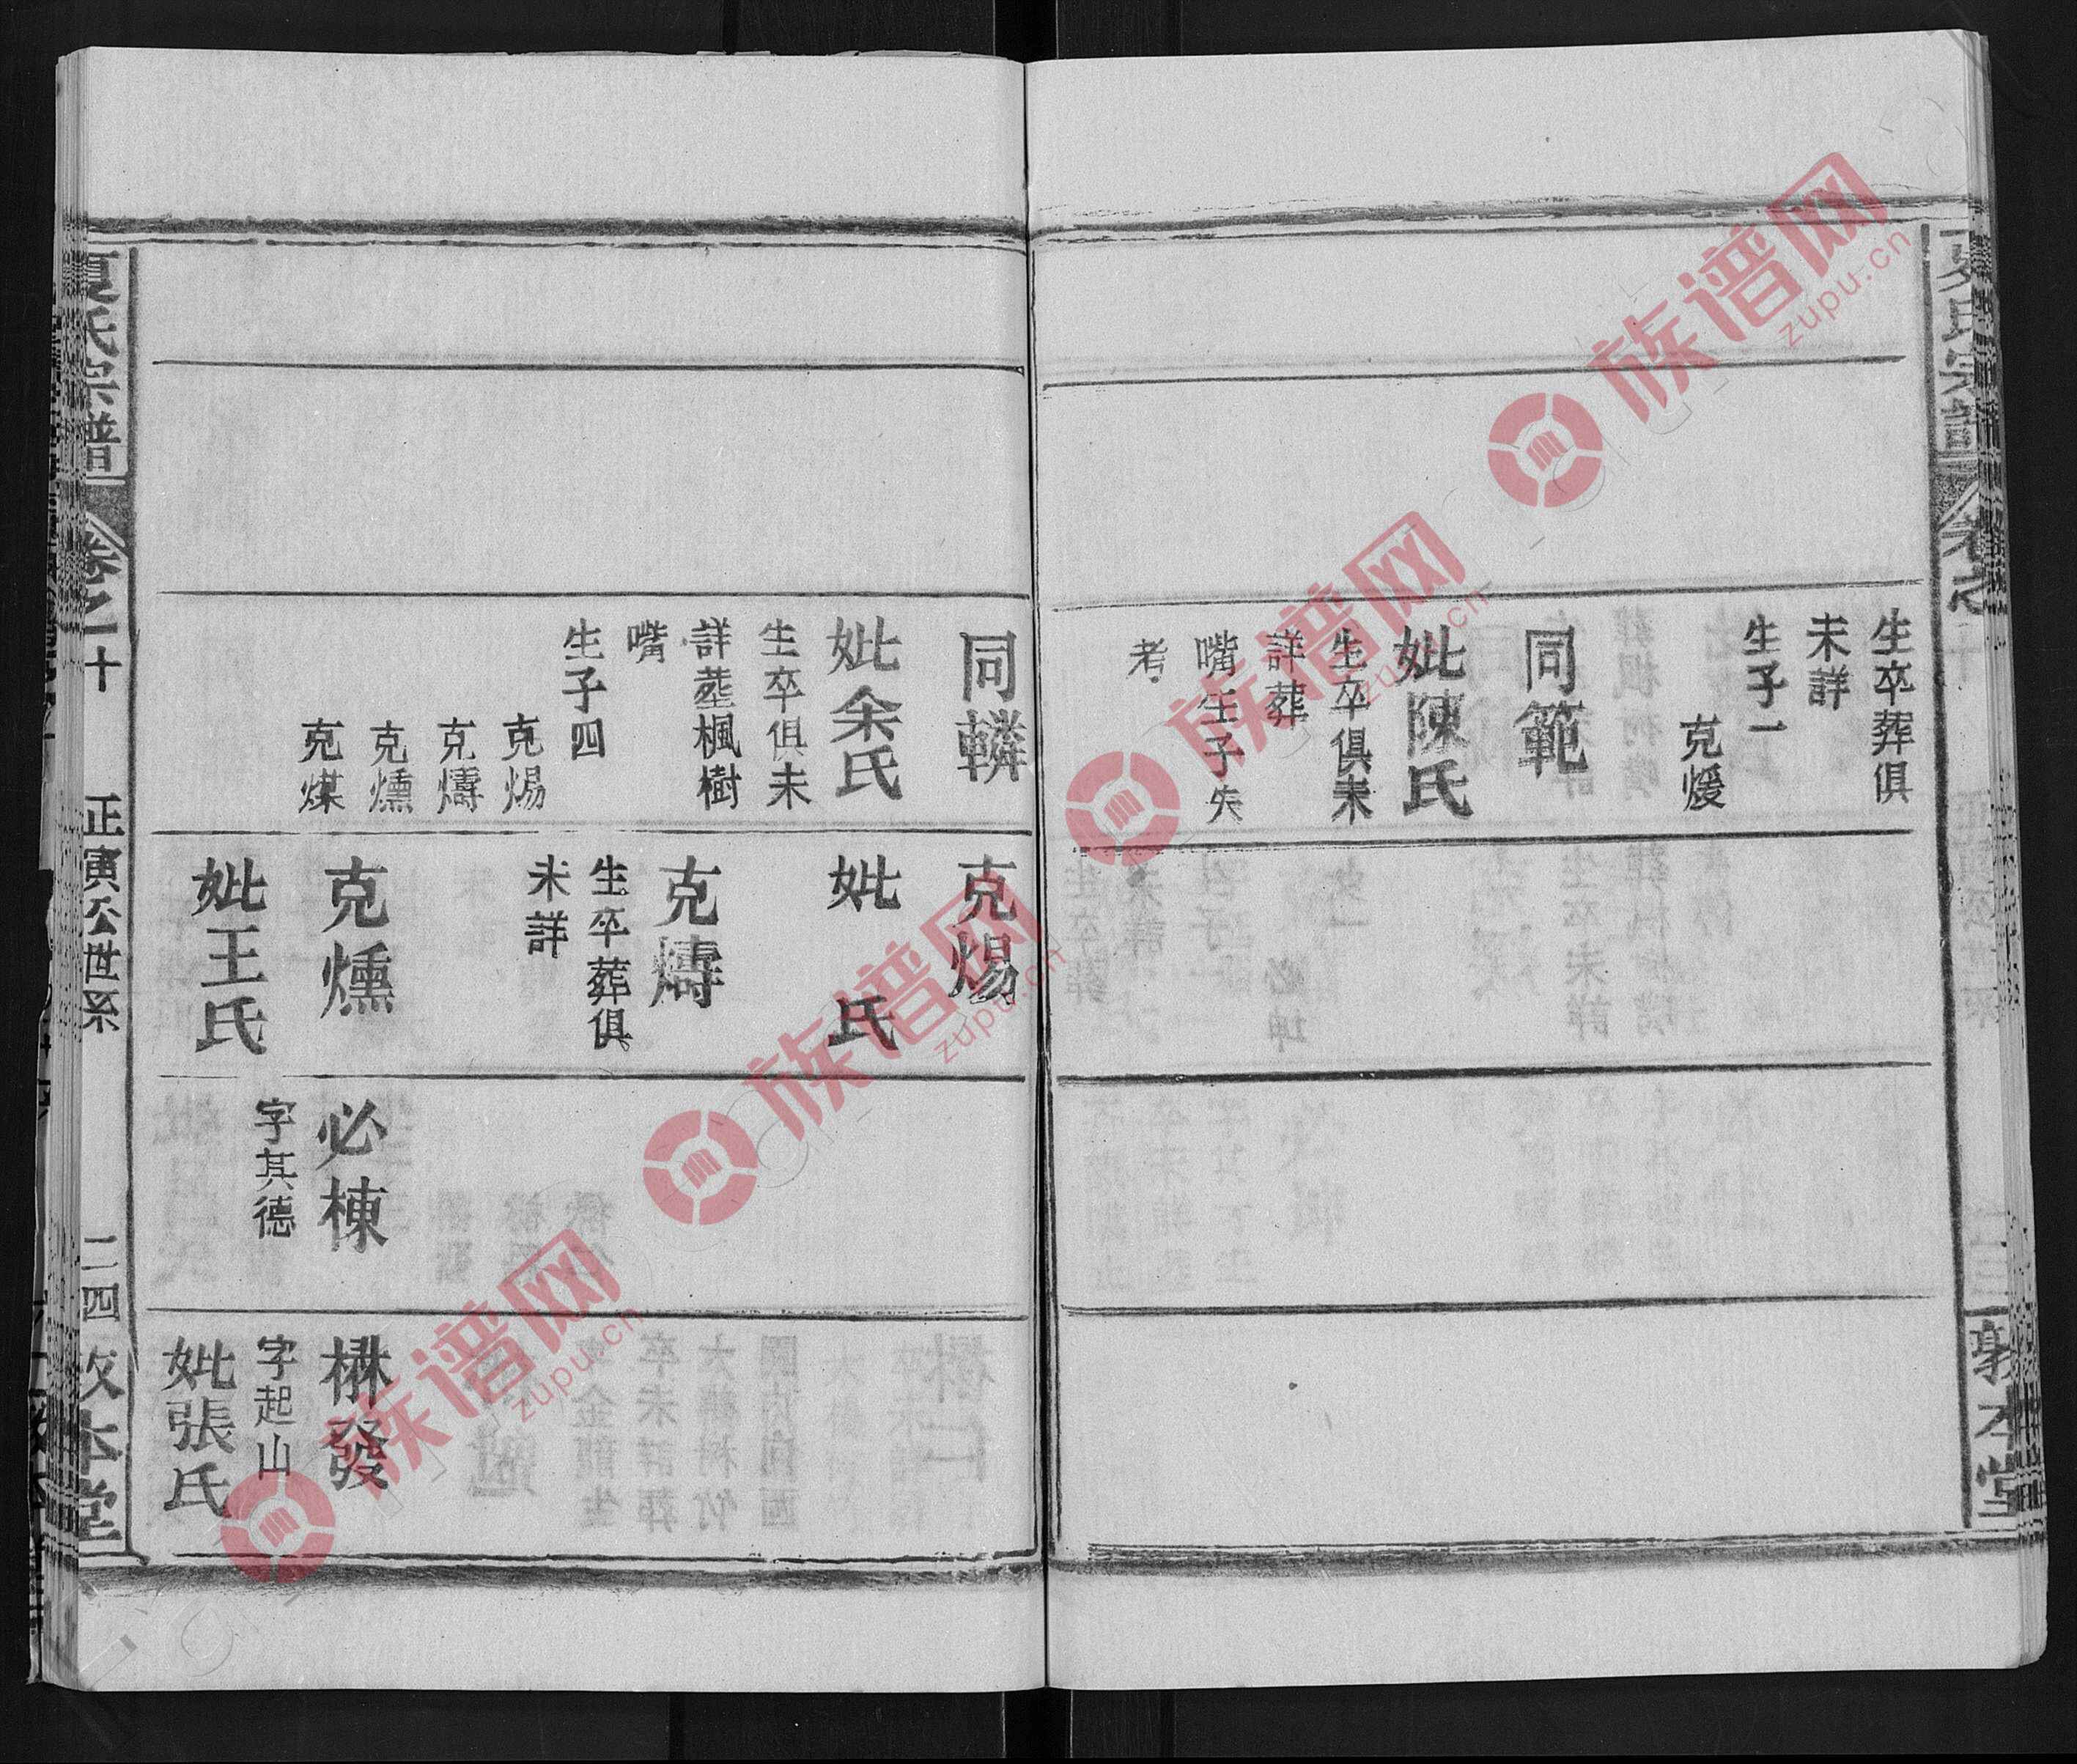 夏氏宗譜
敦本堂
生卒葬俱
未詳
生子一
克煖
同範
妣陳氏
生卒俱未
詳葬
嘴生子失
考
同轔
妣余氏
生卒俱未
詳葬楓樹
嘴
生子四
克煬
克燽
克燻
克煤
克煬
妣 氏
克燽
生卒葬俱
未詳
克燻
妣王氏
必棟
字其德
楙發
字起山
妣張氏
夏氏宗譜
卷之十
正寅公世系
二四
敦本堂
族谱网
zupu.cn
族谱网
zupu.cn
族谱网
zupu.cn
族谱网
zupu.cn